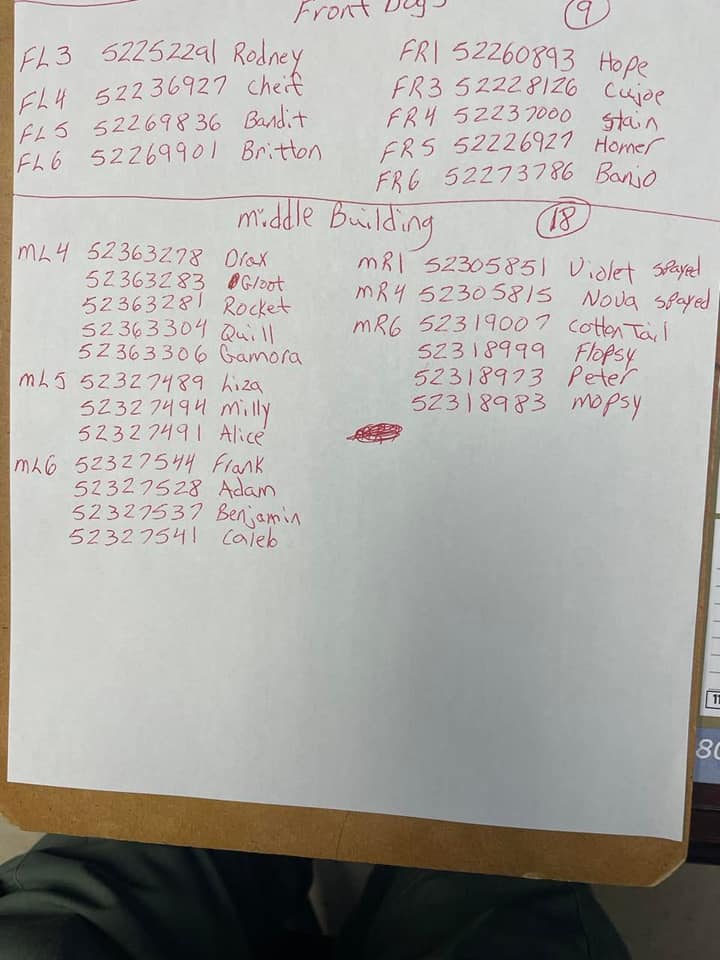 Front Dogs 9
FL3 52252291 Rodney
FL4 52236927 Cheif
FL5 52269836 Bandit
FL6 52269901 Britton
FR1 52260893 Hope
FR3 52228126 Cujoe
FR4 52237000 Stain
FR5 52226927 Homer
FR6 52273786 Banjo
middle Building 18
mL4 52363278 Drax
52363283 Groot
52363281 Rocket
52363304 Quill
52363306 Gamora
mL5 52327489 Liza
52327494 Milly
52327491 Alice
mL6 52327544 Frank
52327528 Adam
52327537 Benjamin
52327541 Caleb
mR1 52305851 Violet Spayed
mR4 52305815 Nova Spayed
mR6 52319007 Cotton Tail
52318999 Flopsy
52318973 Peter
52318983 mopsy
11
80